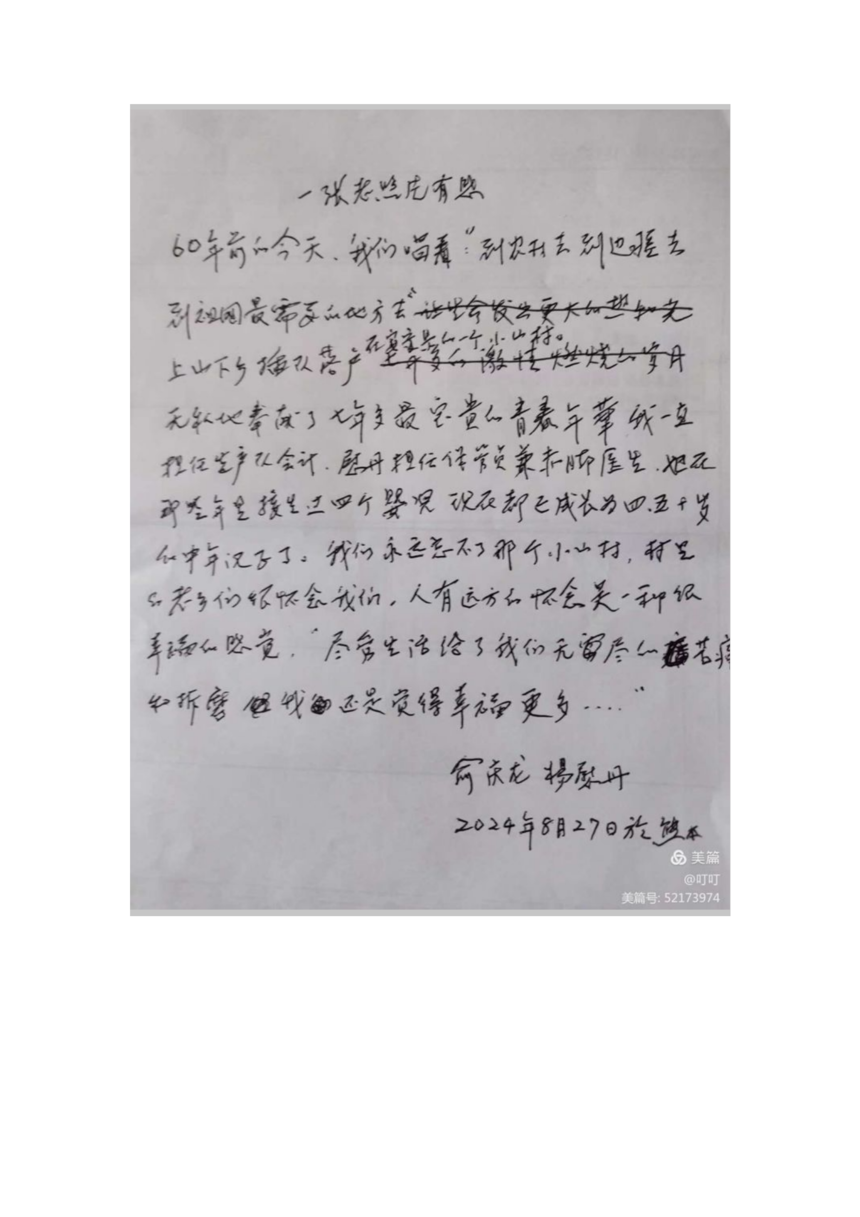 一张老照片有感
60年前的今天、我们唱着"到农村去到边疆去
到祖国最需要的地方去"
在 一个小山村。
上山下乡插队落户
无私地奉献了七年多最宝贵的青春年華 我一直
担任生产队会计、慰丹担任保管员兼赤脚医生、她在
那些年里接生过四个婴児 现在都已成长为四、五十岁
的中年汉子了。我们永远忘不了那个小山村，村里
的老乡们很怀念我们。人有远方的怀念是一种很
幸福的感觉，"尽管生活给了我们无尽的 苦痛
和折磨 但我 还是觉得幸福更多....."
俞庆龙 楊慰丹
2024年8月27日於熊本
美篇
@叮叮
美篇号: 52173974